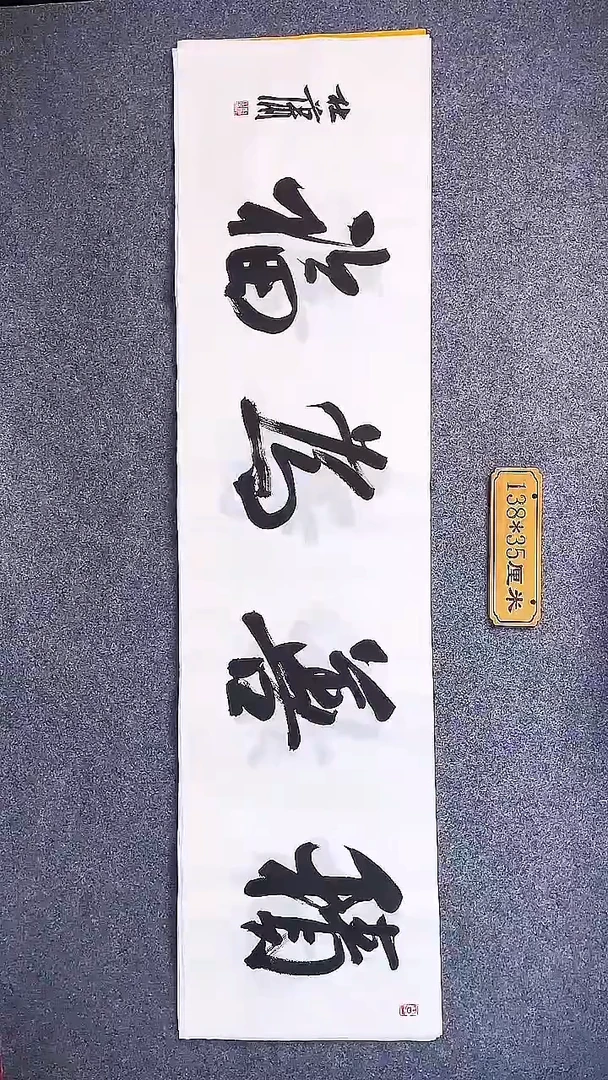 積善為福
138*35厘米